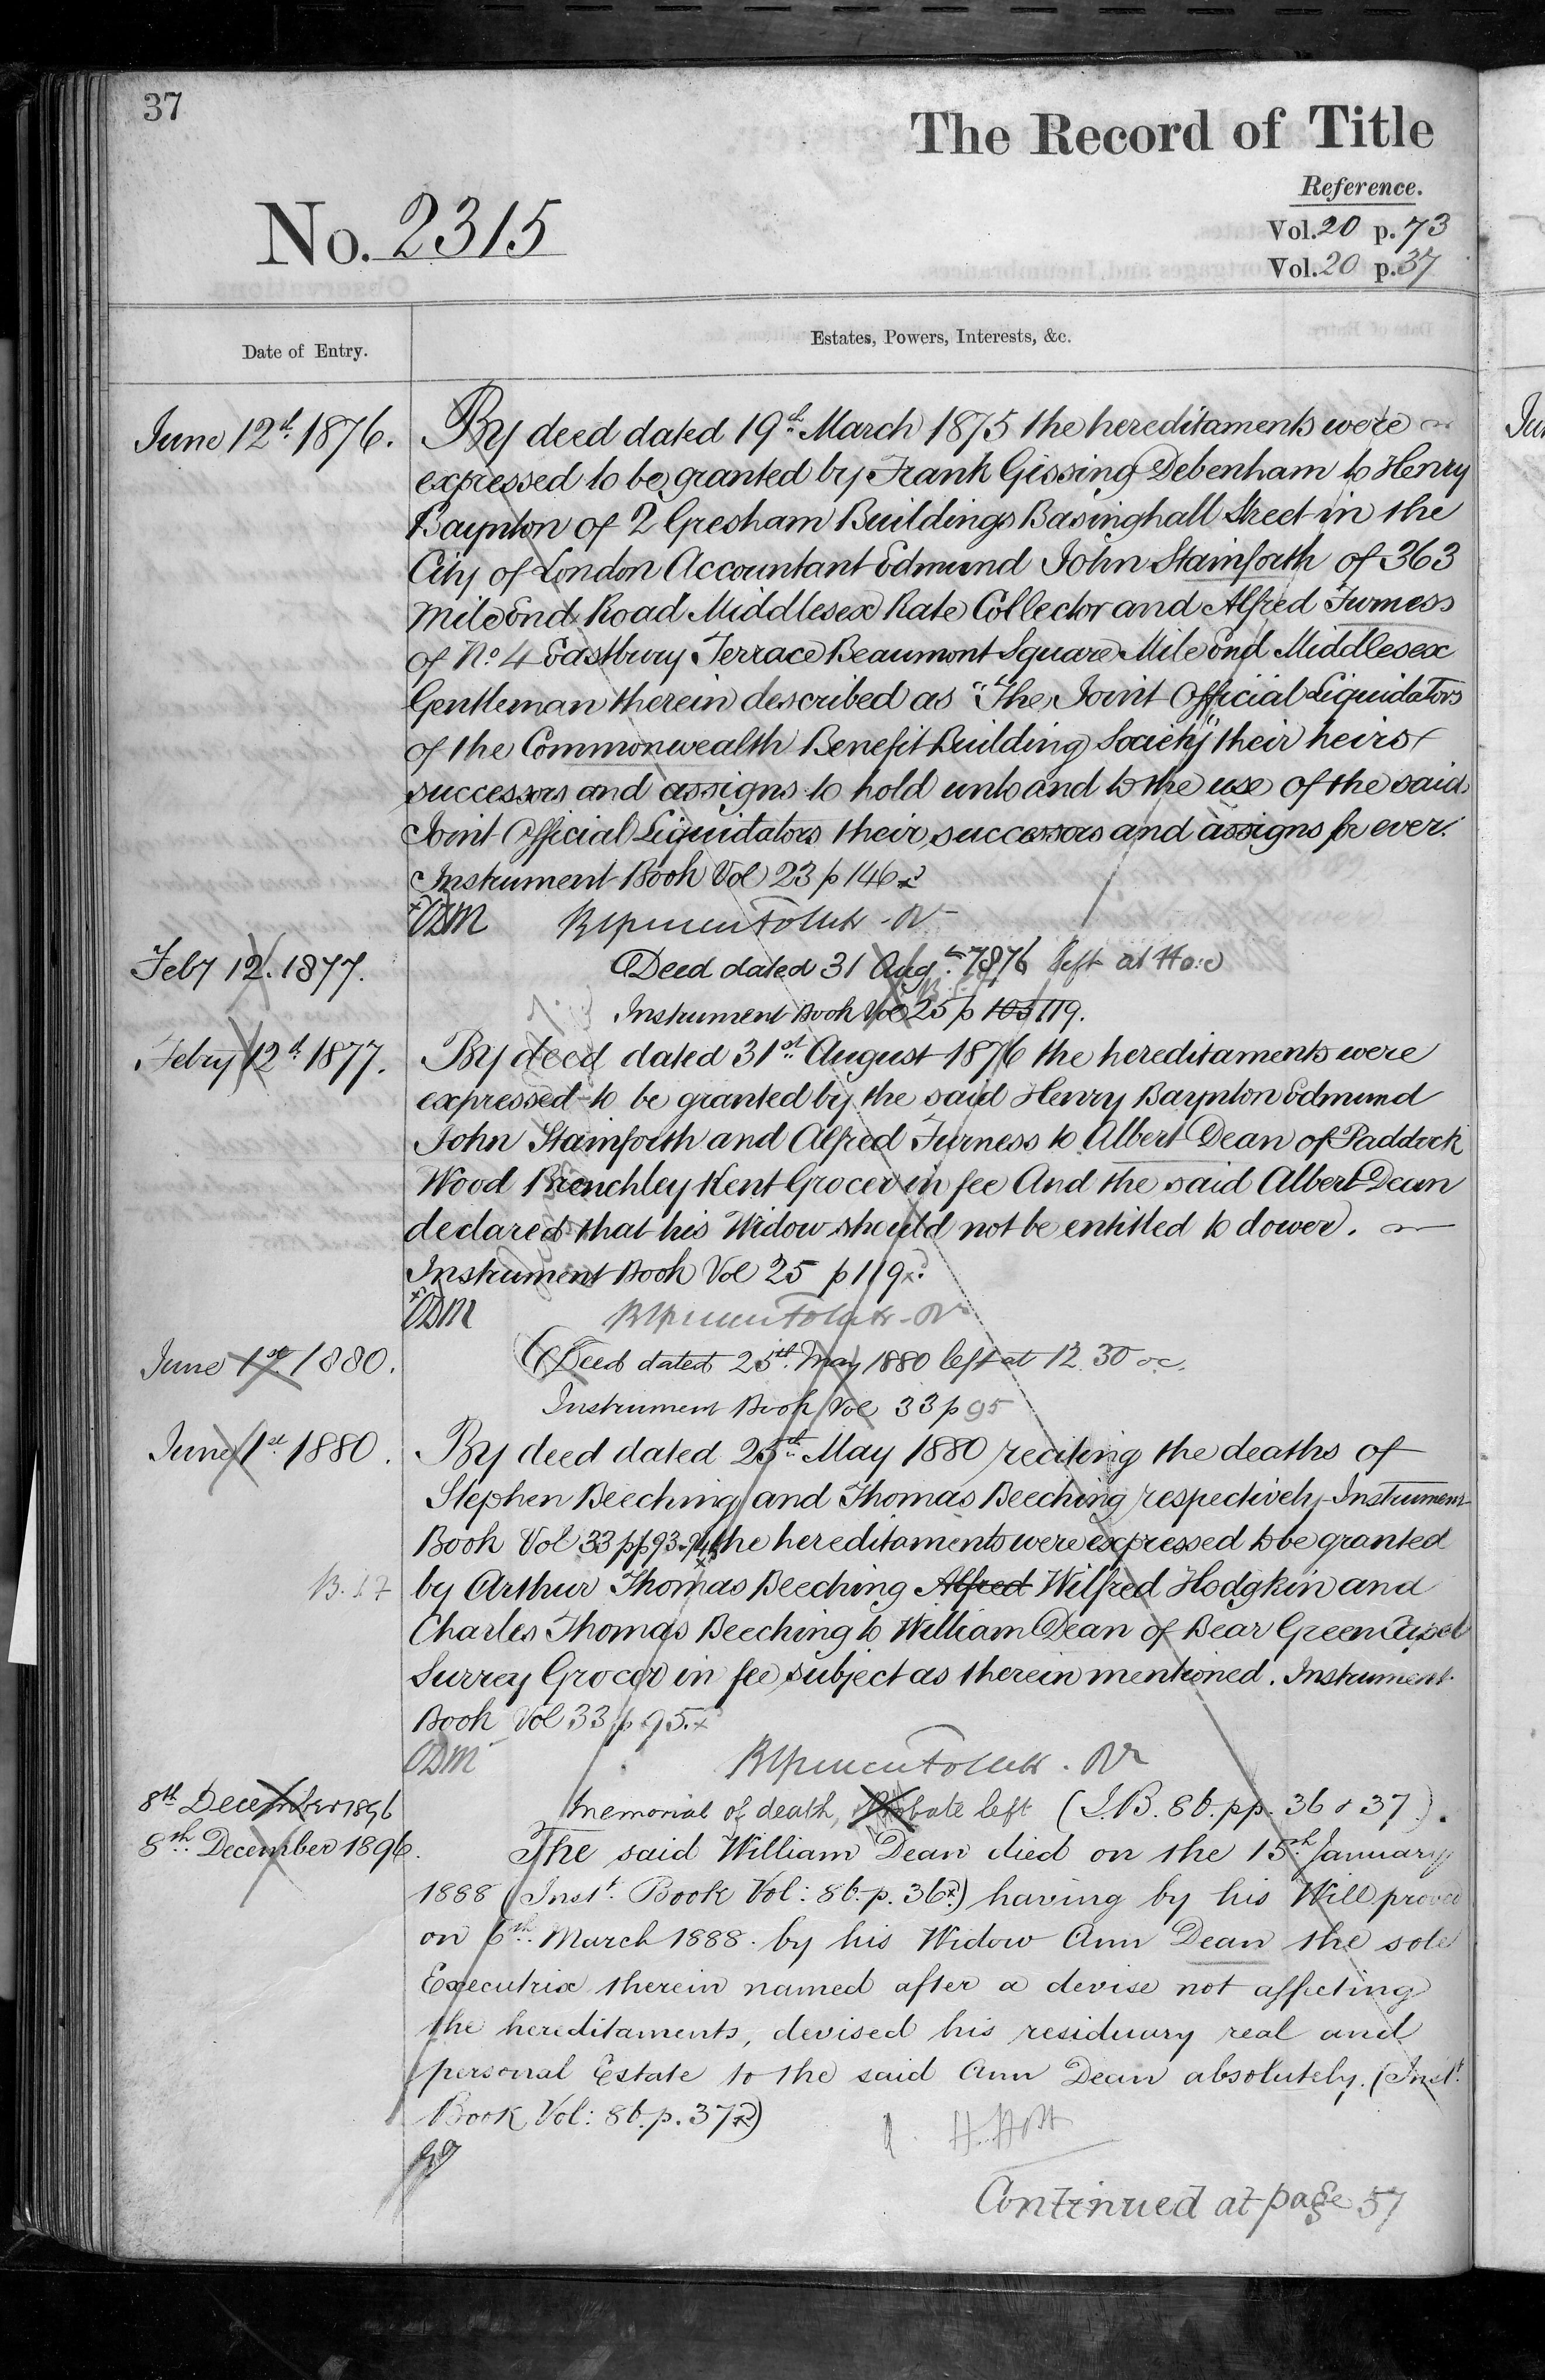 37
The Record of Title
Reference.
No. 2315
Vol. 20 p. 73
Vol. 20 p. 37
Date of Entry.
Estates, Powers, Interests, &c.
June 12th 1876. By deed dated 19th March 1875 the hereditaments were
expressed to be granted by Frank Gissing Debenham to Henry
Baynton of 2 Gresham Buildings Basinghall Street in the
City of London Accountant Edmund John Stainforth of 363
Mile End Road Middlesex Rate Collector and Alfred Furness
of No 4 Eastbury Terrace Beaumont Square Mile End Middlesex
Gentleman therein described as "The Joint Official Liquidators
of the Commonwealth Benefit Building Society" their heirs
successors and assigns to hold unto and to the use of the said
Joint Official Liquidators their successors and assigns for ever.
Instrument Book Vol 23 p 146
Feby 12. 1877. Deed dated 31 Aug. 1876 left at
Instrument Book Vol 25 p 103 119.
Febry 12th 1877. By deed dated 31st August 1876 the hereditaments were
expressed to be granted by the said Henry Baynton Edmund
John Stainforth and Alfred Furness to Albert Dean of Paddock
Wood Brenchley Kent Grocer in fee And the said Albert Dean
declared that his Widow should not be entitled to dower.
Instrument Book Vol 25 p 119
June 1st 1880. Deed dated 25th May 1880 left at 12.30 oc.
Instrument Book Vol 33 p 95
June 1st 1880. By deed dated 25th May 1880 reciting the deaths of
Stephen Beeching and Thomas Beeching respectively Instrument
Book Vol 33 pp 93.94 the hereditaments were expressed to be granted
by Arthur Thomas Beeching Alfred Wilfred Hodgkin and
Charles Thomas Beeching to William Dean of Bear Green Capel
Surrey Grocer in fee subject as therein mentioned. Instrument
Book Vol 33 p 95.
8th December 1896 Memorial of death, Probate left (I.B. 86. pp. 36 & 37).
8th December 1896. The said William Dean died on the 15th January
1888 (Instt. Book Vol: 86. p. 36) having by his Will proved
on 6th March 1888 by his Widow Ann Dean the sole
Executrix therein named after a devise not affecting
the hereditaments, devised his residuary real and
personal Estate to the said Ann Dean absolutely. (Instt.
Book Vol: 86. p. 37)
Continued at page 57